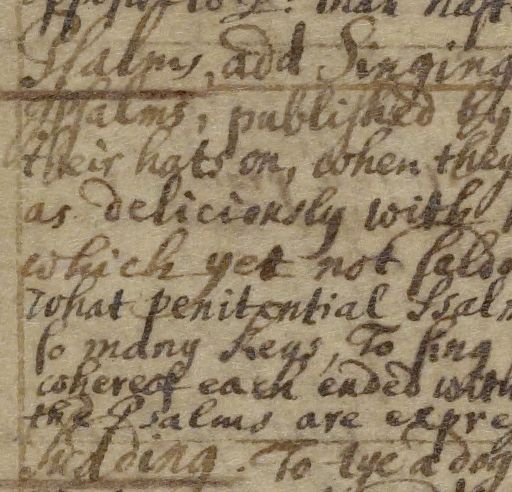 Psalms, add Singing
Psalms, published by
their hats on, when they
as deliciously with
which yet not seldo
What penitential Psalm
so many Keys, To sing
whereof each ended with
the Psalms are expre
Shedding. To tye a dog